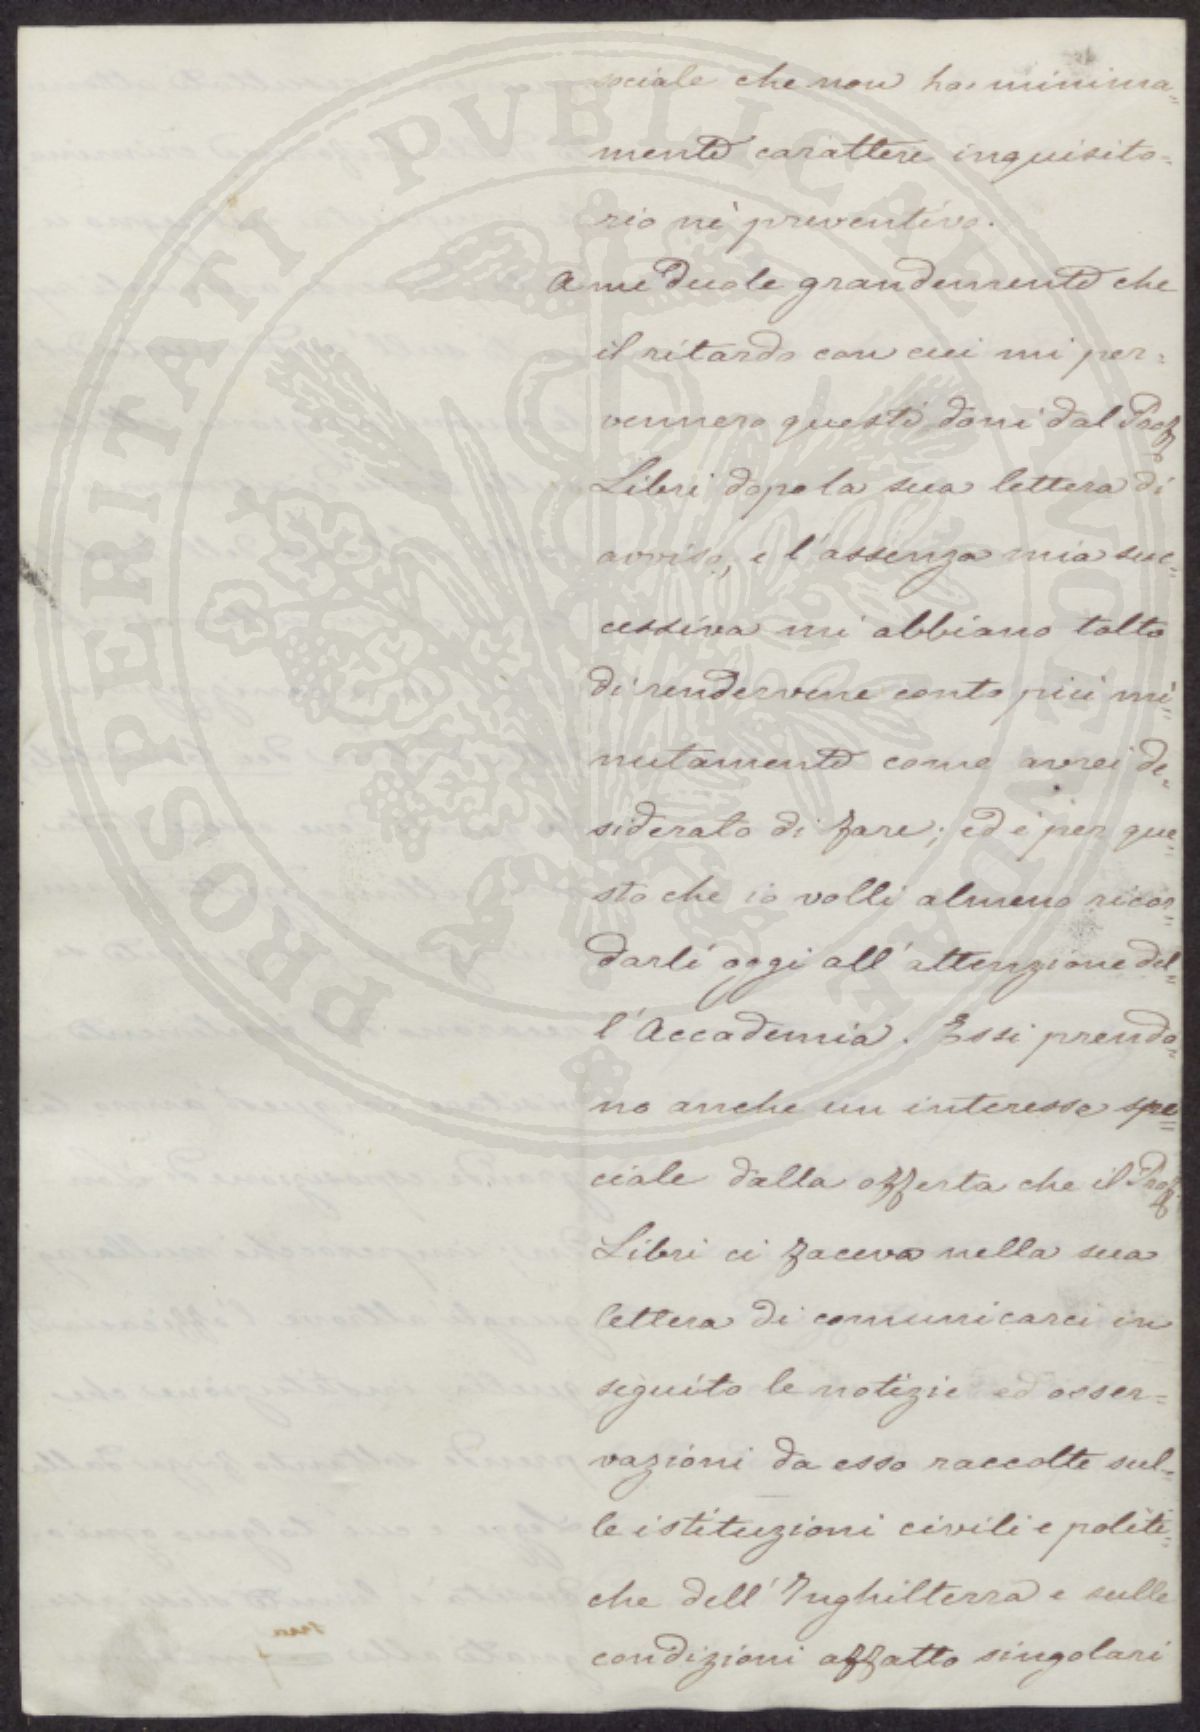 sociale che non ha minima=
mente carattere inquisito=
rio nè preventivo.
A me duole grandemente che
il ritardo con cui mi per=
vennero questi doni dal Prof
Libri dopo la sua lettera di
avviso, e l'assenza mia suc=
cessiva mi abbiano tolto
di rendervene conto più mi=
nutamente come avrei de=
siderato di fare; ed è per que=
sto che io volli almeno ricor=
darli oggi all'attenzione del=
l'Accademia. Essi prendo=
no anche un interesse spe=
ciale dalla offerta che il Prof
Libri ci faceva nella sua
lettera di comunicarci in
seguito le notizie ed osser=
vazioni da esso raccolte sul=
le istituzioni civili e politi=
che dell'Inghilterra e sulle
condizioni affatto singolari
PROSPERITATI PUBLICAE AUGENDAE